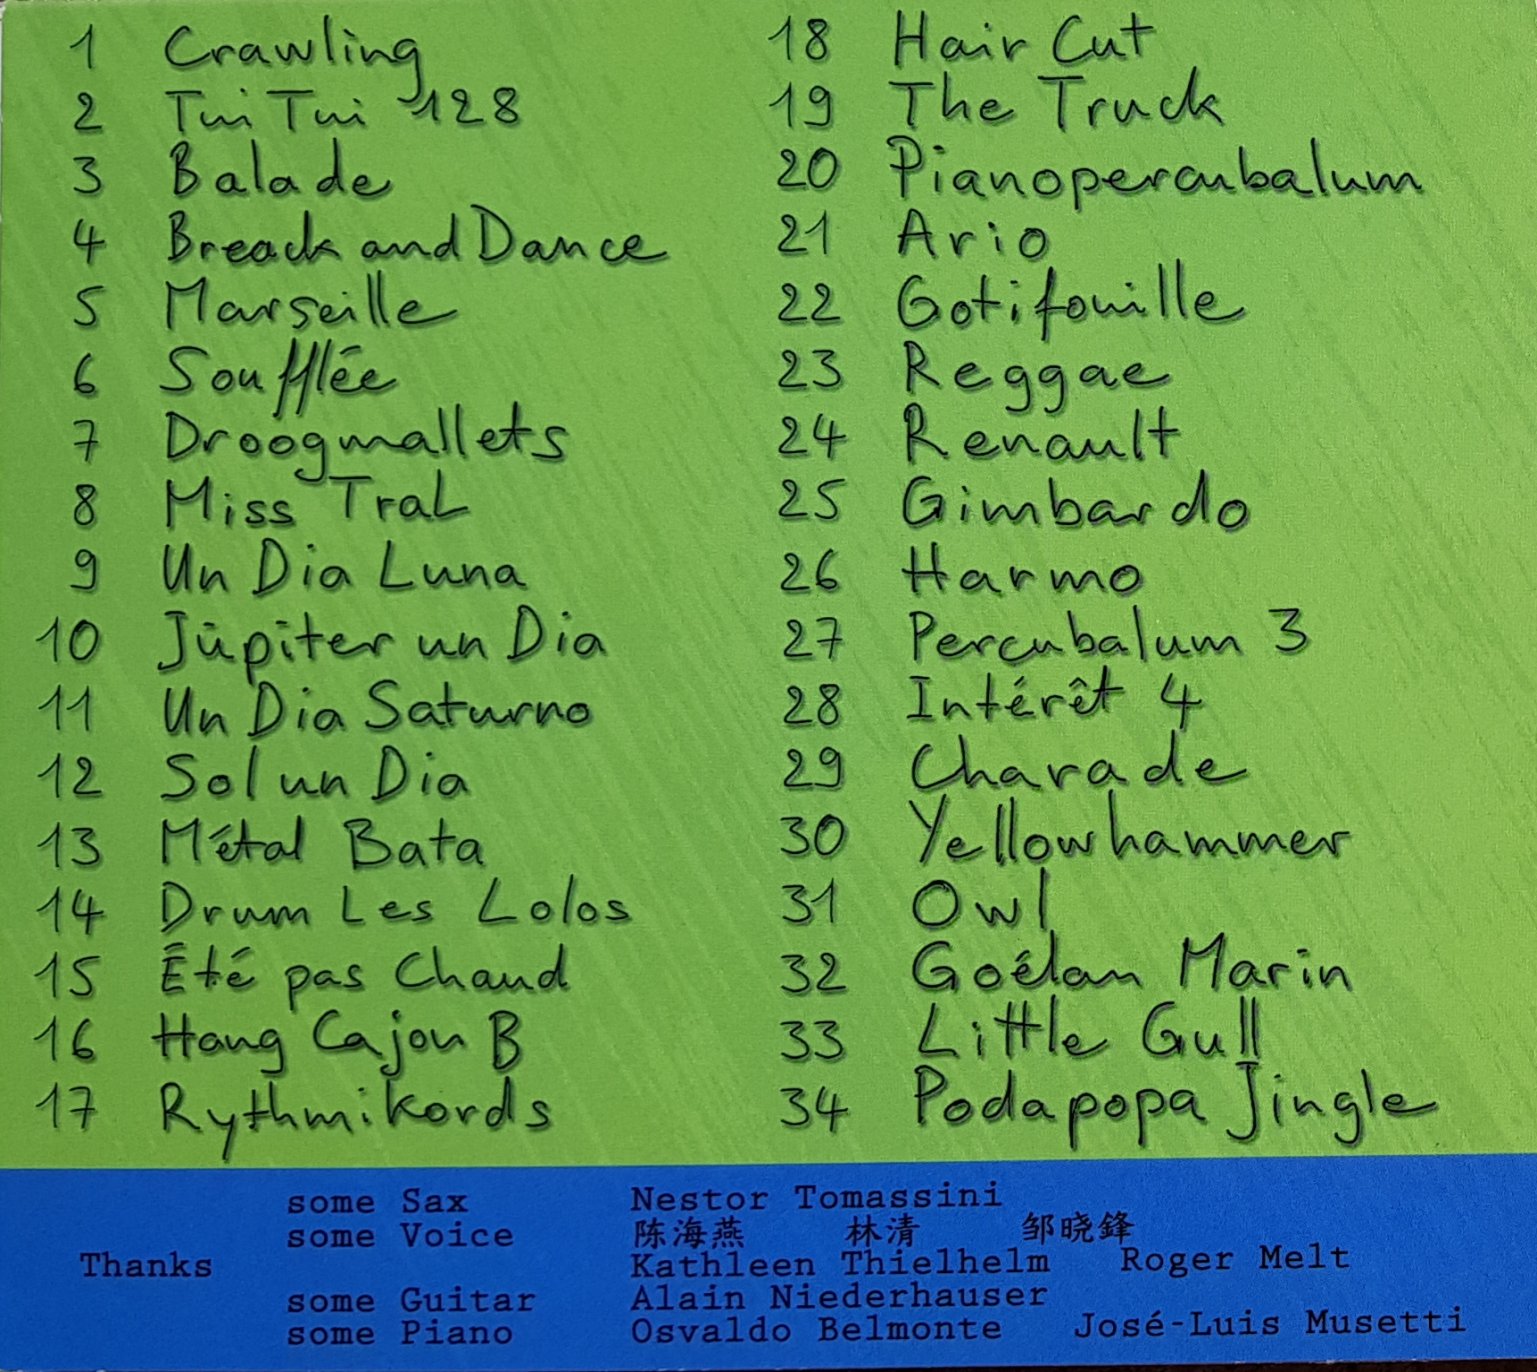 1 Crawling
2 Tui Tui 128
3 Balade
4 Breack and Dance
5 Marseille
6 Soufflée
7 Droogmallets
8 Miss TraL
9 Un Dia Luna
10 Jūpiter un Dia
11 Un Dia Saturno
12 Sol un Dia
13 Métal Bata
14 Drum Les Lolos
15 Été pas Chaud
16 Hang Cajon B
17 Rythmikords
18 Hair Cut
19 The Truck
20 Pianopercubalum
21 Ario
22 Gotifouille
23 Reggae
24 Renault
25 Gimbardo
26 Harmo
27 Percubalum 3
28 Intérêt 4
29 Charade
30 Yellowhammer
31 Owl
32 Goélan Marin
33 Little Gull
34 Podapopa Jingle
Thanks
some Sax Nestor Tomassini
some Voice 陈海燕 林清 邹晓鋒
Kathleen Thielhelm Roger Melt
some Guitar Alain Niederhauser
some Piano Osvaldo Belmonte José-Luis Musetti